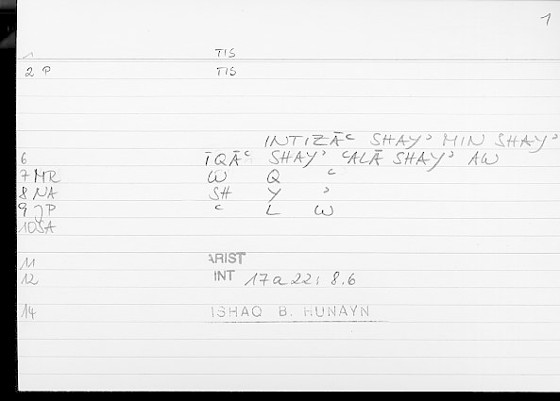 1
1 TIS
2 P TIS
INTIZĀʿ SHAYʾ MIN SHAYʾ
6 ĪQĀʿ SHAYʾ ʿALĀ SHAYʾ AW
7 MR W Q ʿ
8 NA SH Y ʾ
9 JP ʿ L W
10 SA
11 ARIST
12 INT 17a22; 8.6
14 ISHAQ B. HUNAYN